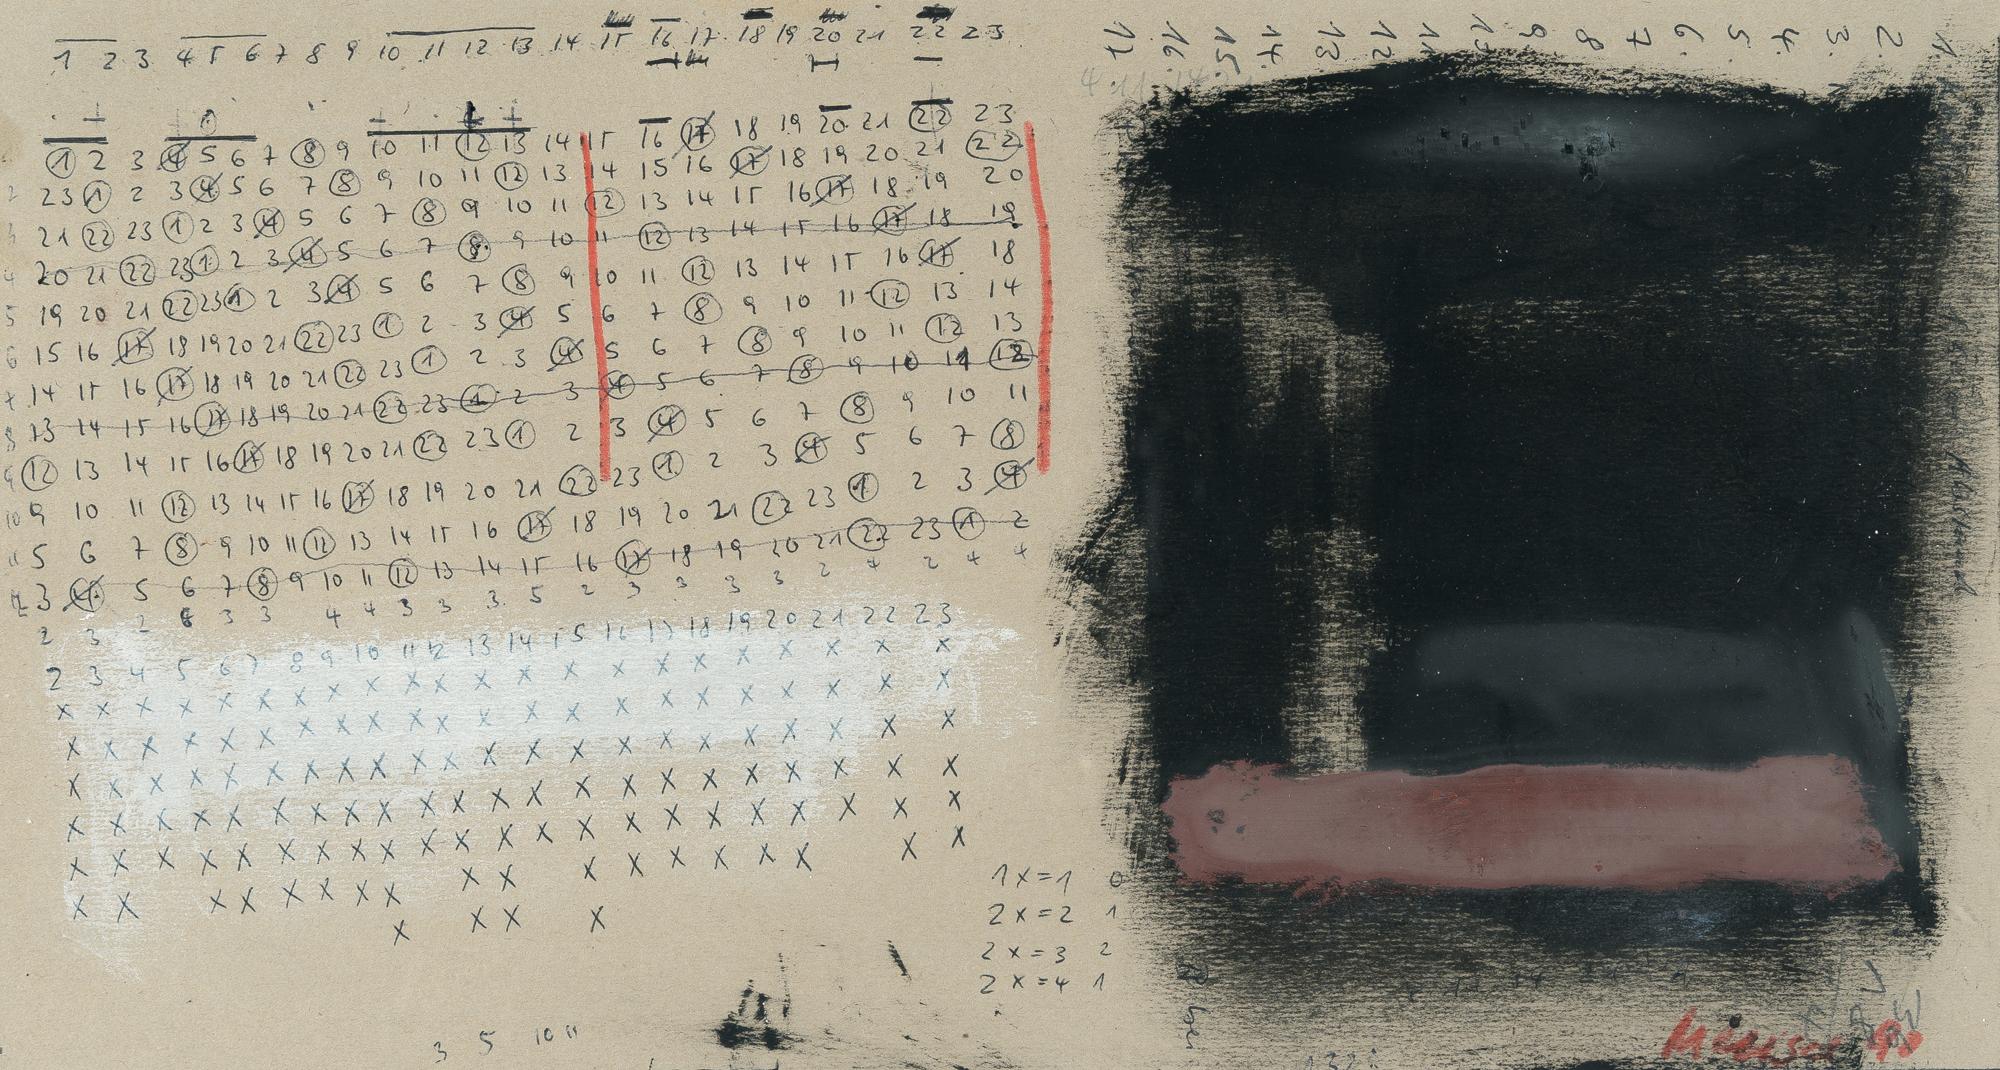 1 2 3 4 5 6 7 8 9 10 11 12 13 14 15 16 17 18 19 20 21 22 23
1 2 3 4 5 6 7 8 9 10 11 12 13 14 15 16 17 18 19 20 21 22 23
2 23 1 2 3 4 5 6 7 8 9 10 11 12 13 14 15 16 17 18 19 20 21 22
3 21 22 23 1 2 3 4 5 6 7 8 9 10 11 12 13 14 15 16 17 18 19 20
4 20 21 22 23 1 2 3 4 5 6 7 8 9 10 11 12 13 14 15 16 17 18 19
5 19 20 21 22 23 1 2 3 4 5 6 7 8 9 10 11 12 13 14 15 16 17 18
6 15 16 17 18 19 20 21 22 23 1 2 3 4 5 6 7 8 9 10 11 12 13 14
7 14 15 16 17 18 19 20 21 22 23 1 2 3 4 5 6 7 8 9 10 11 12 13
8 13 14 15 16 17 18 19 20 21 22 23 1 2 3 4 5 6 7 8 9 10 11 12
9 12 13 14 15 16 17 18 19 20 21 22 23 1 2 3 4 5 6 7 8 9 10 11
10 9 10 11 12 13 14 15 16 17 18 19 20 21 22 23 1 2 3 4 5 6 7 8
11 5 6 7 8 9 10 11 12 13 14 15 16 17 18 19 20 21 22 23 1 2 3 4
3 4 5 6 7 8 9 10 11 12 13 14 15 16 17 18 19 20 21 22 23 1 2
2 3 2 3 3 4 4 3 3 3 5 2 3 3 3 3 2 4 2 4 4
2 3 4 5 6 7 8 9 10 11 12 13 14 15 16 17 18 19 20 21 22 23
x x x x x x x x x x x x x x x x x x x x x x
x x x x x x x x x x x x x x x x x x x x x x
x x x x x x x x x x x x x x x x x x x x x x
x x x x x x x x x x x x x x x x x x x x x x
x x x x x x x x x x x x x x x x x x x x x x
x x x x x x x x x x x x x x x x x x x
x x x x x x x x x x x
1x=1 0
2x=2 1
2x=3 2
2x=4 1
3 5 10 11
17 16. 15 14. 13 12 11 10 9 8 7 6. 5. 4. 3. 2. 1.
4. 11. 14. 21
90